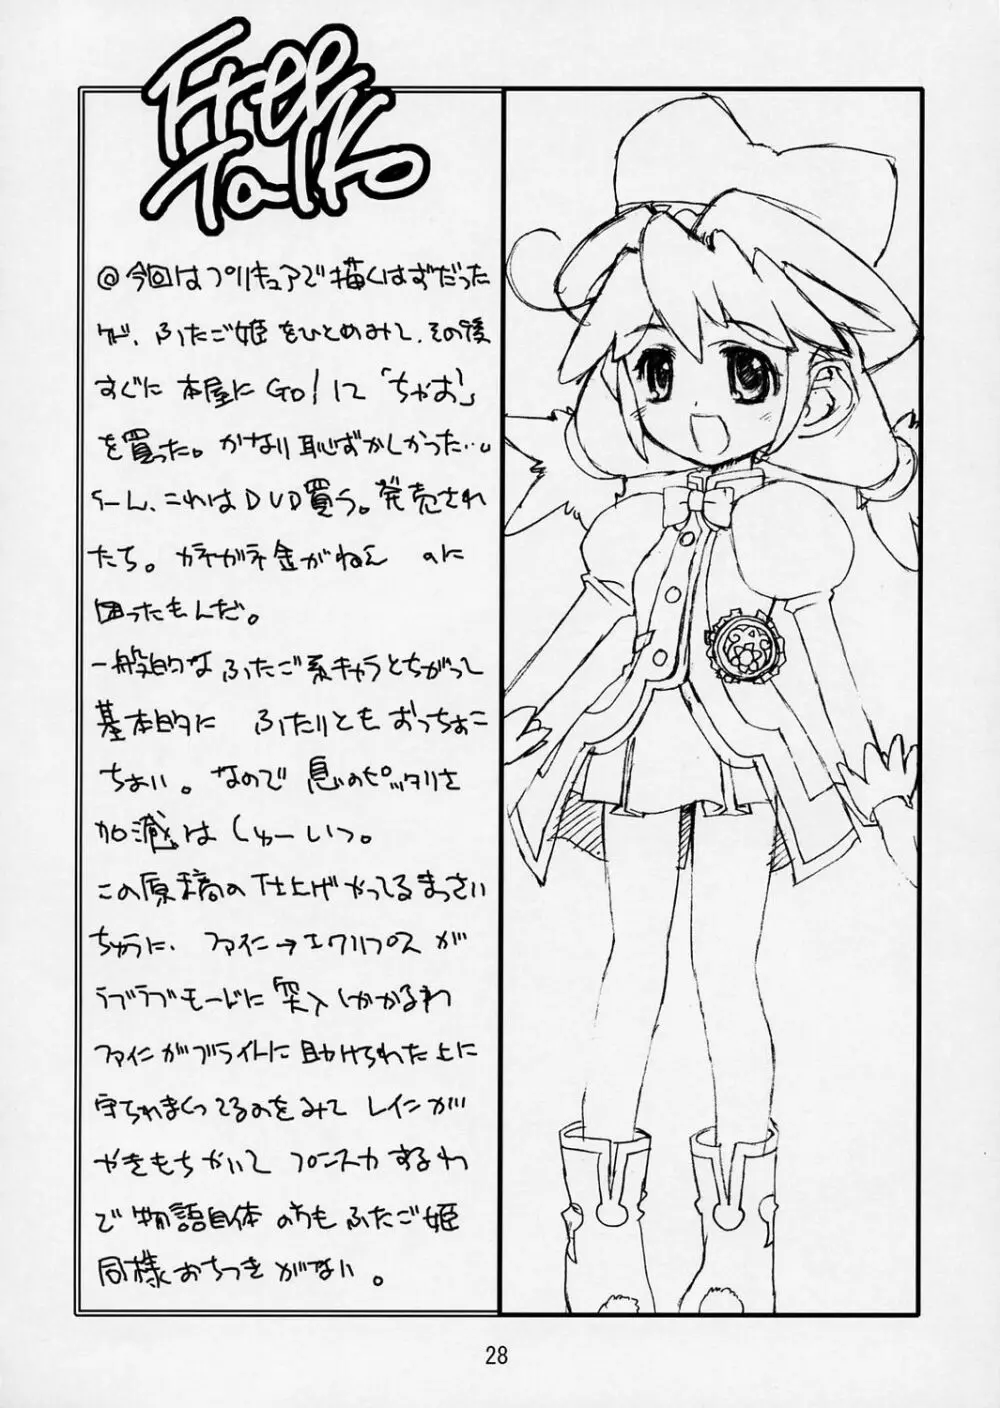 Free
Talk
@今回はプリキュアで描くはずだった
が、ふたご姫をひとめみて、その後
すぐに本屋にGO!して「ちゃお」
を買った。かなり恥ずかしかった…。
うーん、これはDVD買う。発売され
たち。カネガネ金がねえ のに
困ったもんだ。
一般的なふたご系キャラとちがって
基本的に ふたりとも おっちょこ
ちょい。なので 息のピッタリさ
加減はしゅーいつ。
この原稿の仕上げやってるまっさい
ちゅうに、ファイン→エクリプスが
ラブラブモードに突入しかかるわ
ファインがブライトに助けられた上に
守られまくってるのをみてレインが
やきもちかいて プンスカするわ
で物語自体の方もふたご姫
同様おちつきがない。
28